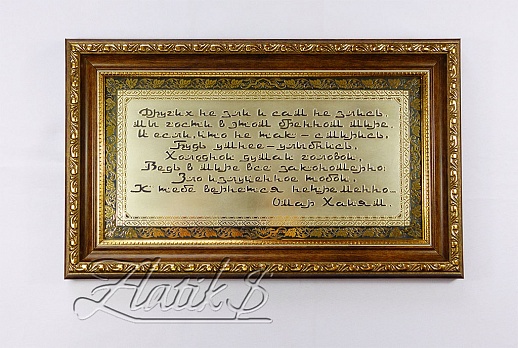 Других не зли и сам не злись,
Мы гости в этом бренном мире,
И если, что не так – смирись,
Будь умнее – улыбнись.
Холодной думай головой,
Ведь в мире все закономерно:
Зло излученное тобой,
К тебе вернется непременно –
Омар Хайям.